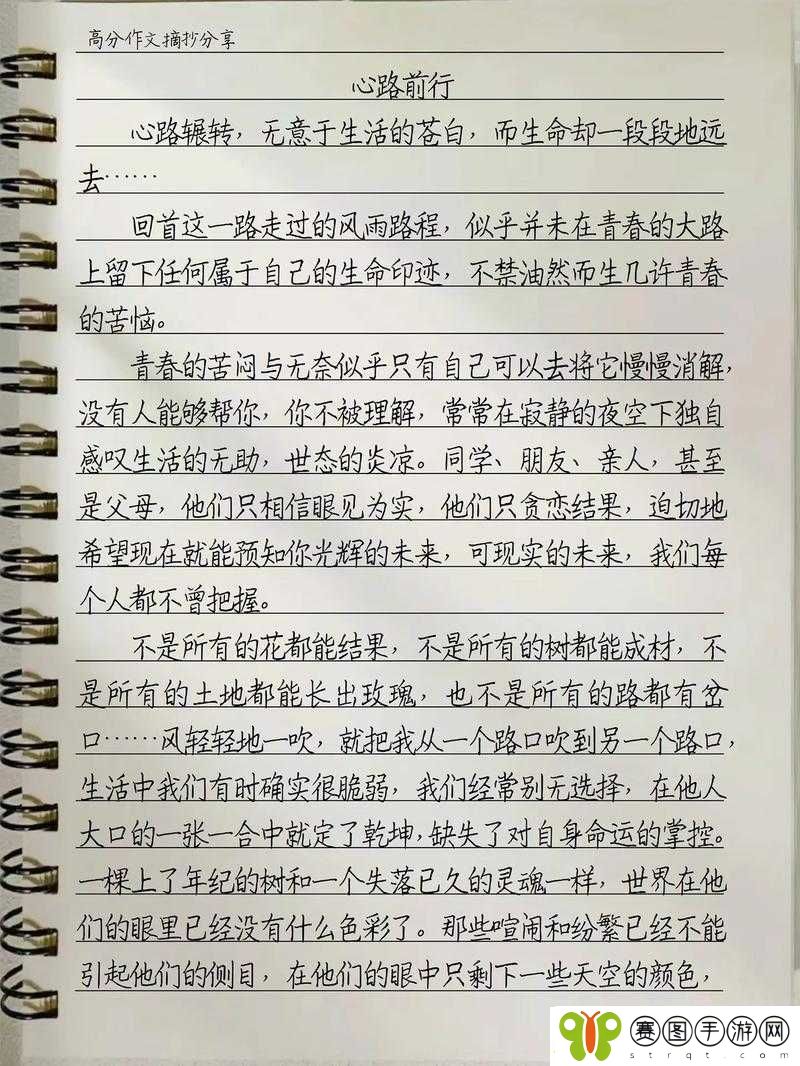 高分作文摘抄分享
心路前行
心路辗转，无意于生活的苍白，而生命却一段段地远
去……
回首这一路走过的风雨路程，似乎并未在青春的大路
上留下任何属于自己的生命印迹，不禁油然而生几许青春
的苦恼。
青春的苦闷与无奈似乎只有自己可以去将它慢慢消解，
没有人能够帮你，你不被理解，常常在寂静的夜空下独自
感叹生活的无助，世态的炎凉。同学、朋友、亲人，甚至
是父母，他们只相信眼见为实，他们只贪恋结果，迫切地
希望现在就能预知你光辉的未来，可现实的未来，我们每
个人都不曾把握。
不是所有的花都能结果，不是所有的树都能成材，不
是所有的土地都能长出玫瑰，也不是所有的路都有岔
口……风轻轻地一吹，就把我从一个路口吹到另一个路口，
生活中我们有时确实很脆弱，我们经常别无选择，在他人
大口的一张一合中就定了乾坤，缺失了对自身命运的掌控。
一棵上了年纪的树和一个失落已久的灵魂一样，世界在他
们的眼里已经没有什么色彩了。那些喧闹和纷繁已经不能
引起他们的侧目，在他们的眼中只剩下一些天空的颜色，
赛图手游网
strqt.com